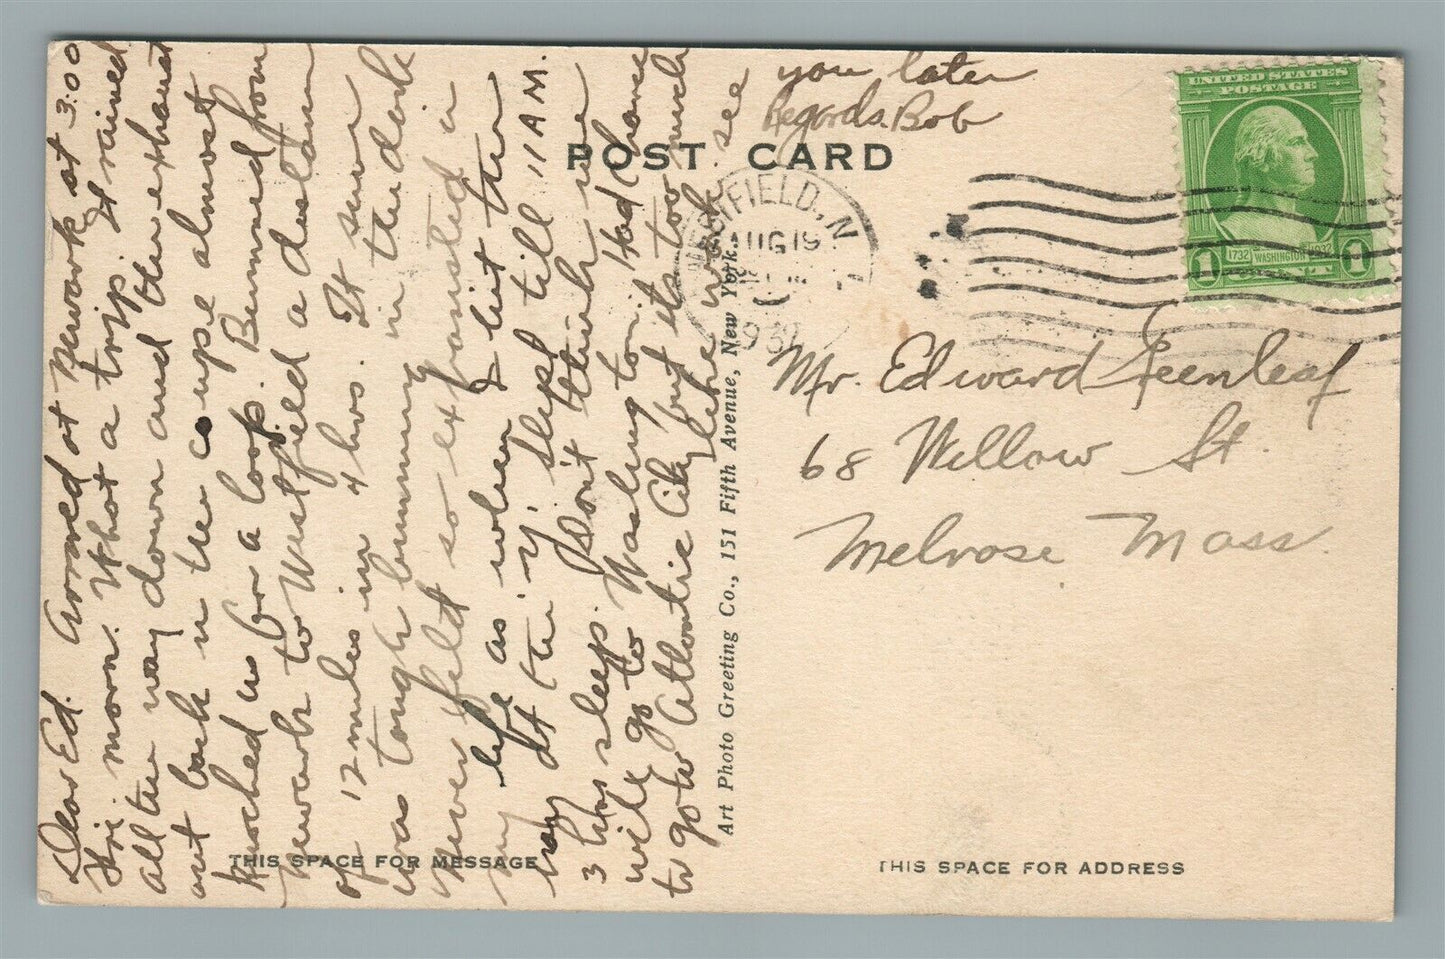 Dear Ed. Arrived at Newark at 3:00
Fri. morn. What a trip. It rained
all the way down and the exhaust
out back in the coupe almost
knocked us for a loop. Bummed from
Newark to Westfield a distance
of 12 miles in 4 hrs. It sure
was tough bumming in the dark
Never felt so exhausted in
my life as when I hit the
hay. At the 'y.' slept till 11 A M.
3 hrs sleep. Don't think we
will go to Washington. Had chance
to go to Atlantic City but its too much
like work see
you later
Regards. Bob
POST CARD
UNITED STATES
POSTAGE
1732 WASHINGTON 1932
1 CENT 1
WESTFIELD, N.
AUG 19
1932
Mr. Edward Greenleaf
68 Willow St.
Melrose Mass.
Art Photo Greeting Co., 151 Fifth Avenue, New York.
THIS SPACE FOR MESSAGE
THIS SPACE FOR ADDRESS